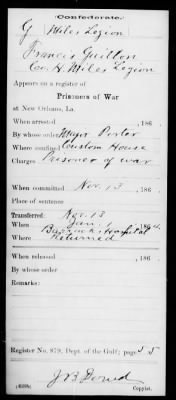 Confederate.
G Miles Legion
Francis Guitton
Co. H. Miles Legion
Appears on a register of
Prisoners of War
at New Orleans, La.
When arrested , 186 .
By whose order Major Porter
Where confined Custom House
Charges Prisoner of war
When committed Nov. 13 , 186 .
Place of sentence
Transferred: Nov. 13
When Jan. 1 , 1864
Where Barracks Hospital
Returned
When released , 186 .
By whose order
Remarks:
Register No. 879, Dept. of the Gulf; page 55
J B
Copyist.